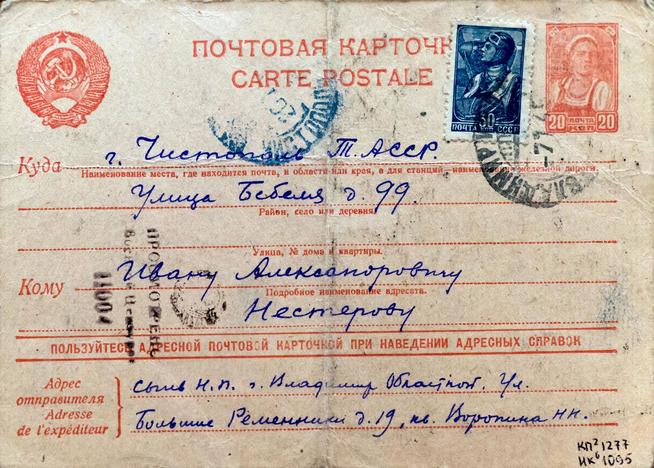 ПОЧТОВАЯ КАРТОЧК
CARTE POSTALE
30
ПОЧТА СССР
20 ПОЧТА 20
КОП
Куда г. Чистополь Т. АССР.
Наименование места, где находится почта, и области или края, а для станции—наименование железной дороги.
Улица Бебеля д. 99.
Район, село или деревня.
Улица, № дома и квартиры.
Кому Ивану Александровичу
Подробное наименование адресата.
Нестерову
ПРОСМОТРЕНО
Военной Цензурой
11004
ПОЛЬЗУЙТЕСЬ АДРЕСНОЙ ПОЧТОВОЙ КАРТОЧКОЙ ПРИ НАВЕДЕНИИ АДРЕСНЫХ СПРАВОК
Адрес
отправителя
Adresse
de l'expéditeur
г. Владимир Областной, Ул.
Большие Ременники д. 19, кв. Воронина Н.Н.
КП² 1277
НК⁶ 1095